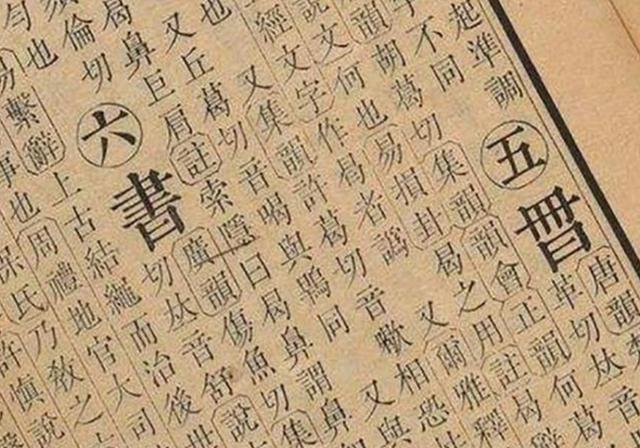 起準調
不同
五
唐韻
革切𠀤音
胡葛切集韻韻會正韻何葛
說文何也易損卦曷之用註曷
經文字作曷者譌
又爾雅釋
又集韻許葛切音歇相恐
也
又丘葛切音喝與鶡同
又與
曷鼻巨肩註索隱曰曷鼻謂鼻
倫切
六書
廣韻傷魚切集
切𠀤音舒說
勻也
易繫辭上古結繩而治後世
事也周禮地官大司
保氏乃敎之
許慎說